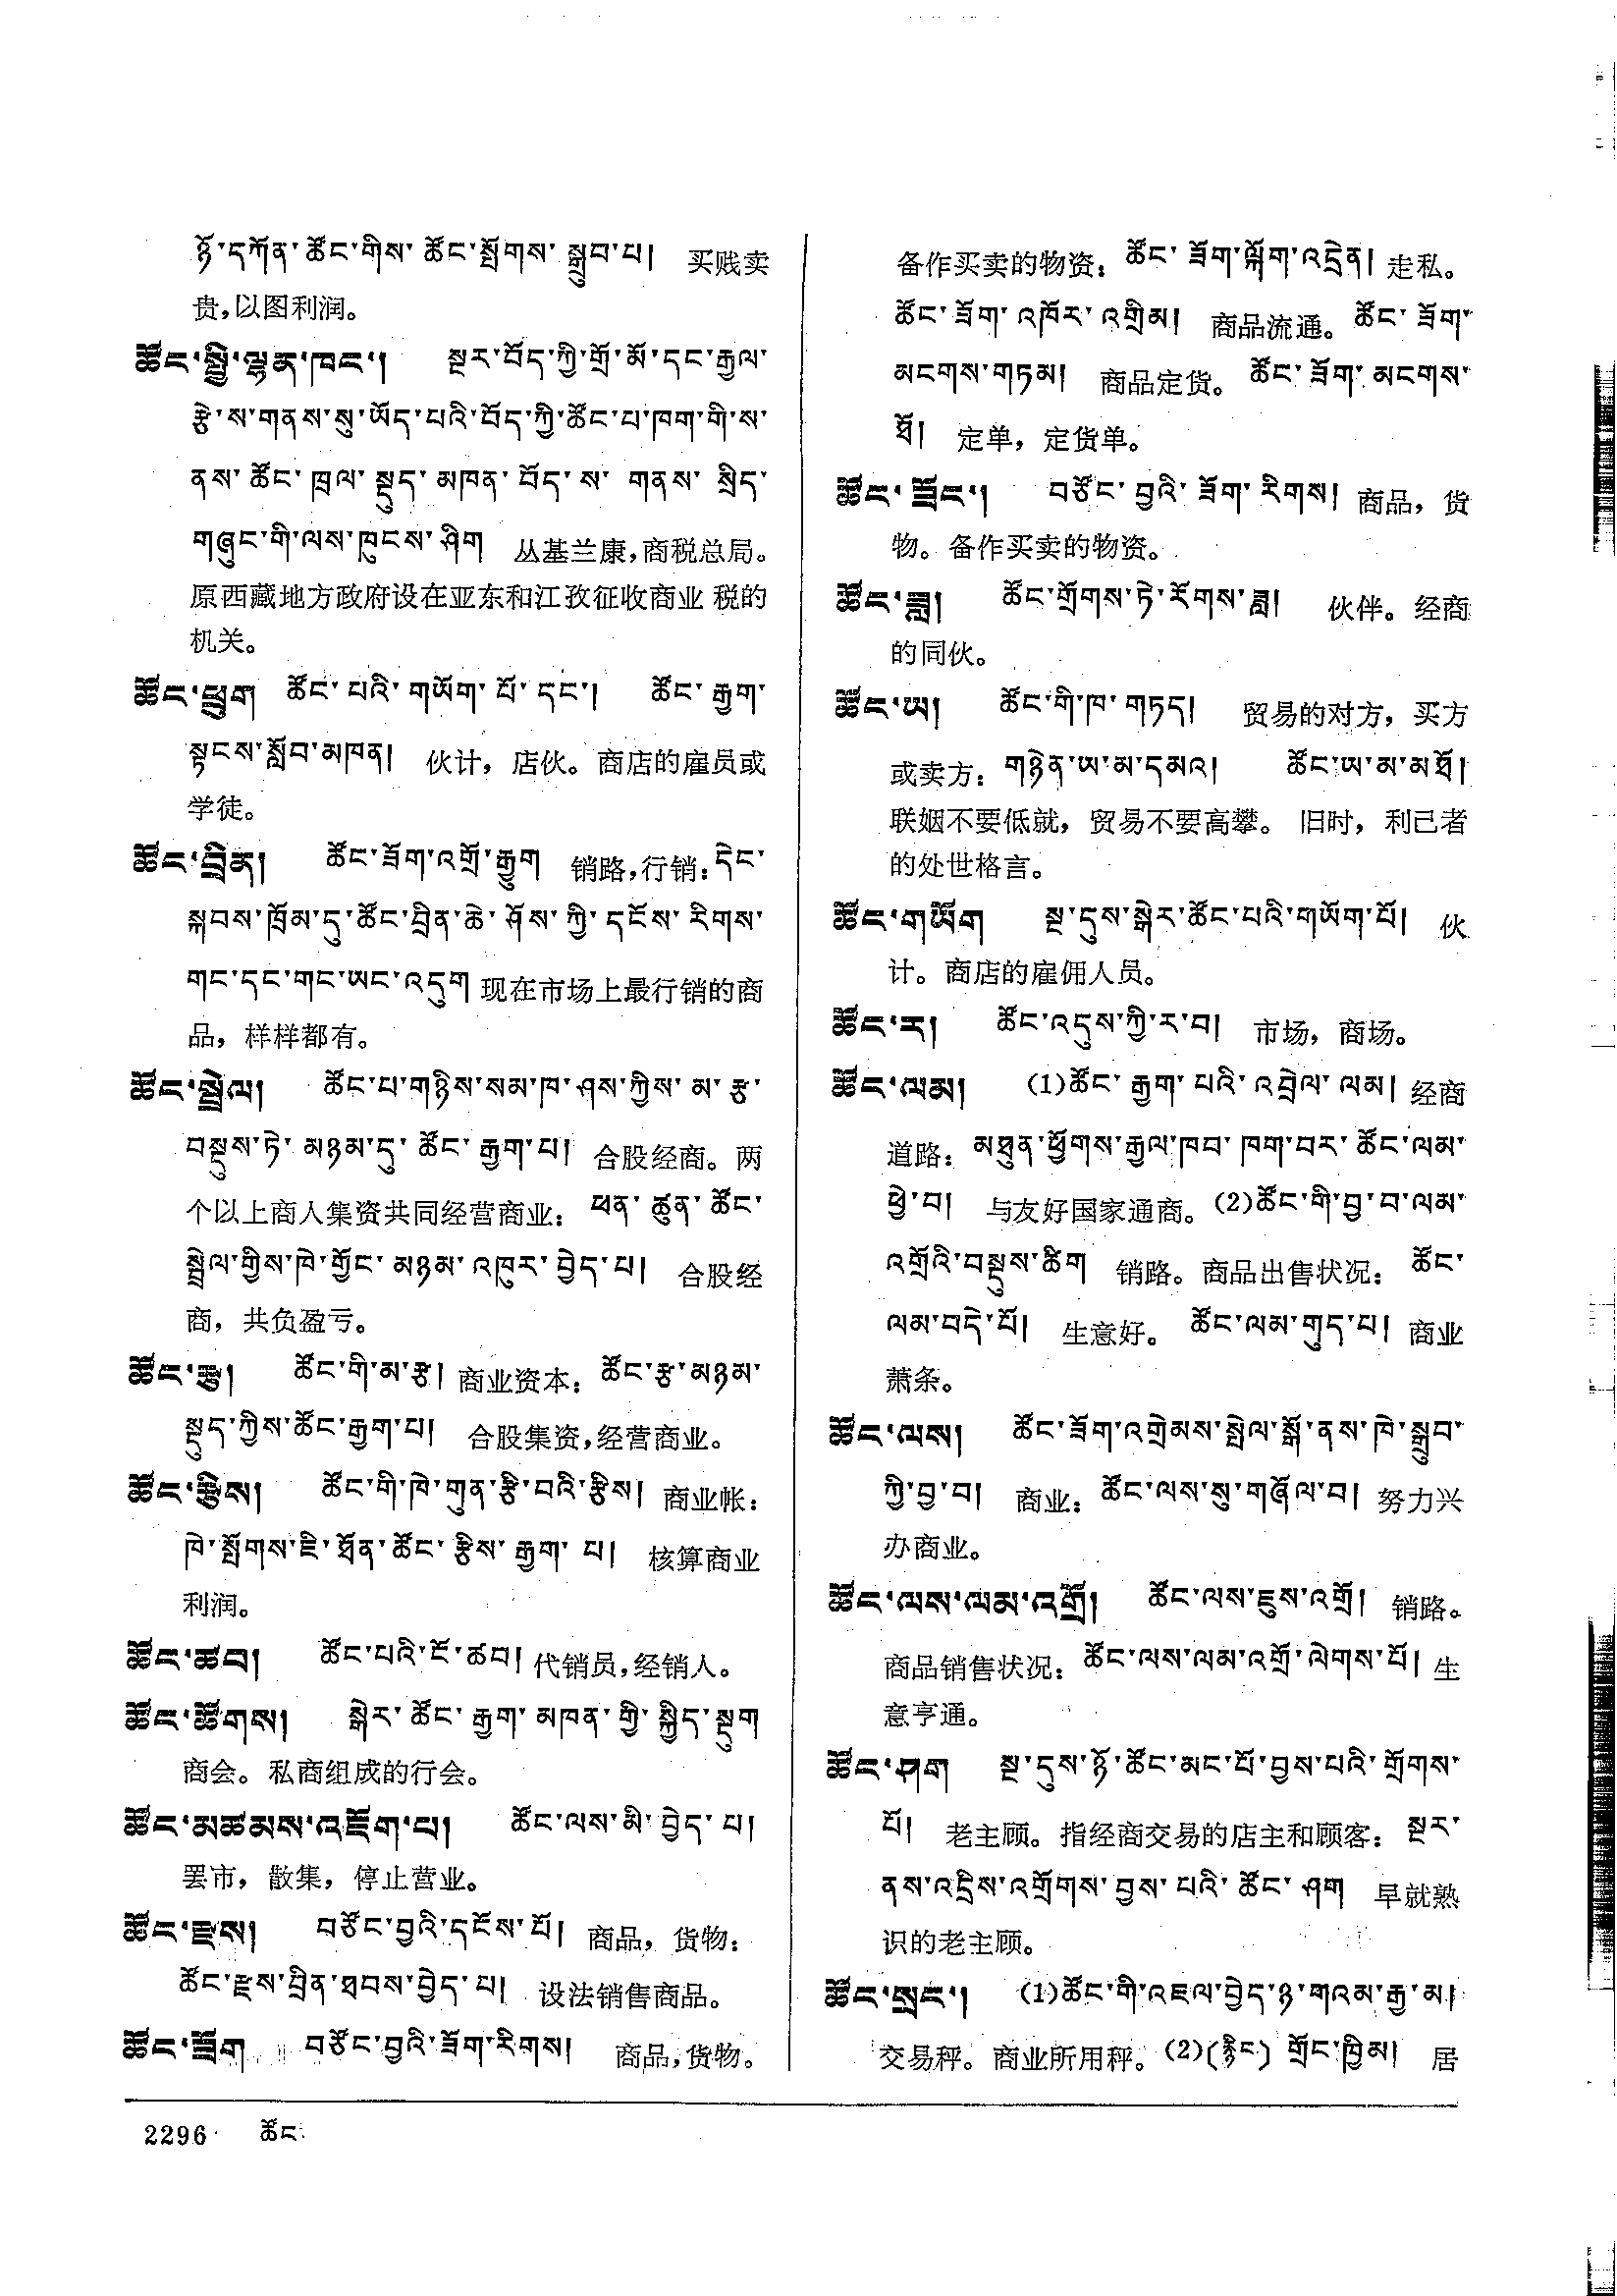 ཉོ་དཀོན་ཚོང་གིས་ ཚོང་སྤོགས་ སྒྲུབ་པ། 买贱卖
贵,以图利润。
ཚོང་སྤྱི་ལྷན་ཁང་། སྔར་བོད་ཀྱི་གྲོ་མོ་དང་རྒྱལ་
རྩེ་ས་གནས་སུ་ཡོད་པའི་བོད་ཀྱི་ཚོང་པ་ཁག་གི་ས་
ནས་ ཚོང་ ཁྲལ་ སྡུད་ མཁན་ བོད་ ས་ གནས་ སྲིད་
གཞུང་གི་ལས་ཁུངས་ཤིག 丛基兰康,商税总局。
原西藏地方政府设在亚东和江孜征收商业税的
机关。
ཚོང་ཕྲུག ཚོང་ པའི་ གཡོག་ པོ་ དང་། ཚོང་ རྒྱག་
སྟངས་སློབ་མཁན། 伙计，店伙。商店的雇员或
学徒。
ཚོང་བྲིན། ཚོང་ཟོག་འགྲོ་རྒྱུག 销路,行销：དེང་
སྐབས་ཁྲོམ་དུ་ཚོང་བྲིན་ཆེ་ ཤོས་ཀྱི་ དངོས་ རིགས་
གང་དང་གང་ཡང་འདུག 现在市场上最行销的商
品，样样都有。
ཚོང་སྦྲེལ། ཚོང་པ་གཉིས་སམ་ཁ་ཤས་ཀྱིས་ མ་ རྩ་
བསྡུས་ཏེ་ མཉམ་དུ་ ཚོང་ རྒྱག་པ། 合股经商。两
个以上商人集资共同经营商业：ཕན་ ཚུན་ ཚོང་
སྦྲེལ་གྱིས་ཁེ་གྱོང་ མཉམ་ འཁུར་ བྱེད་པ། 合股经
商，共负盈亏。
ཚོང་རྩ། ཚོང་གི་མ་རྩ། 商业资本：ཚོང་རྩ་མཉམ་
སྡུད་ཀྱིས་ཚོང་རྒྱག་པ། 合股集资,经营商业。
ཚོང་རྩིས། ཚོང་གི་ཁེ་གུན་རྩི་བའི་རྩིས། 商业帐：
ཁེ་སྤོགས་ཇི་ཐོན་ཚོང་ རྩིས་ རྒྱག་ པ། 核算商业
利润。
ཚོང་ཚབ། ཚོང་པའི་ངོ་ཚབ། 代销员,经销人。
ཚོང་ཚོགས། སྒེར་ ཚོང་ རྒྱག་ མཁན་ གྱི་ སྐྱིད་སྡུག
商会。私商组成的行会。
ཚོང་མཚམས་འཇོག་པ། ཚོང་ལས་མི་ བྱེད་ པ།
罢市，散集，停止营业。
ཚོང་རྫས། བཙོང་བྱའི་དངོས་པོ། 商品，货物：
ཚོང་རྫས་བྲིན་ཐབས་བྱེད་པ། 设法销售商品。
ཚོང་ཟོག བཙོང་བྱའི་ཟོག་རིགས། 商品,货物。
备作买卖的物资：ཚོང་ ཟོག་ལྐོག་འདྲེན། 走私。
ཚོང་ཟོག་ འཁོར་ འགྲིམ། 商品流通。ཚོང་ ཟོག་
མངགས་གཏམ། 商品定货。ཚོང་ ཟོག་ མངགས་
ཐོ། 定单，定货单。
ཚོང་ཟོང་། བཙོང་ བྱའི་ ཟོག་ རིགས། 商品，货
物。备作买卖的物资。
ཚོང་ཟླ། ཚོང་གྲོགས་ཏེ་རོགས་ཟླ། 伙伴。经商
的同伙。
ཚོང་ཡ། ཚོང་གི་ཁ་ གཏད། 贸易的对方，买方
或卖方：གཉེན་ཡ་མ་དམའ། ཚོང་ཡ་མ་མཐོ།
联姻不要低就，贸易不要高攀。旧时，利己者
的处世格言。
ཚོང་གཡོག སྔ་དུས་སྒེར་ཚོང་པའི་གཡོག་པོ། 伙
计。商店的雇佣人员。
ཚོང་ར། ཚོང་འདུས་ཀྱི་ར་བ། 市场，商场。
ཚོང་ལམ། (1)ཚོང་ རྒྱག་ པའི་ འབྲེལ་ ལམ། 经商
道路：མཐུན་ཕྱོགས་རྒྱལ་ཁབ་ ཁག་བར་ ཚོང་ལམ་
ཕྱེ་བ། 与友好国家通商。(2)ཚོང་གི་བྱ་བ་ལམ་
འགྲོའི་བསྡུས་ཚིག 销路。商品出售状况：ཚོང་
ལམ་བདེ་པོ། 生意好。ཚོང་ལམ་གུད་པ། 商业
萧条。
ཚོང་ལས། ཚོང་ཟོག་འགྲེམས་སྤེལ་སྒོ་ནས་ཁེ་སྒྲུབ་
ཀྱི་བྱ་བ། 商业：ཚོང་ལས་སུ་གཞོལ་བ། 努力兴
办商业。
ཚོང་ལས་ལམ་འགྲོ། ཚོང་ལས་ཇུས་འགྲོ། 销路。
商品销售状况：ཚོང་ལས་ལམ་འགྲོ་ལེགས་པོ། 生
意亨通。
ཚོང་ཤག སྔ་དུས་ཉོ་ཚོང་མང་པོ་བྱས་པའི་ གྲོགས་
པོ། 老主顾。指经商交易的店主和顾客：སྔར་
ནས་འདྲིས་འགྲོགས་བྱས་པའི་ ཚོང་ ཤག 早就熟
识的老主顾。
ཚོང་སྲང་། (1)ཚོང་གི་འཇལ་བྱེད་ཉ་གའམ་རྒྱ་མ།
交易秤。商业所用秤。(2)(རྙིང) གྲོང་ཁྱིམ། 居
2296 ཚོང